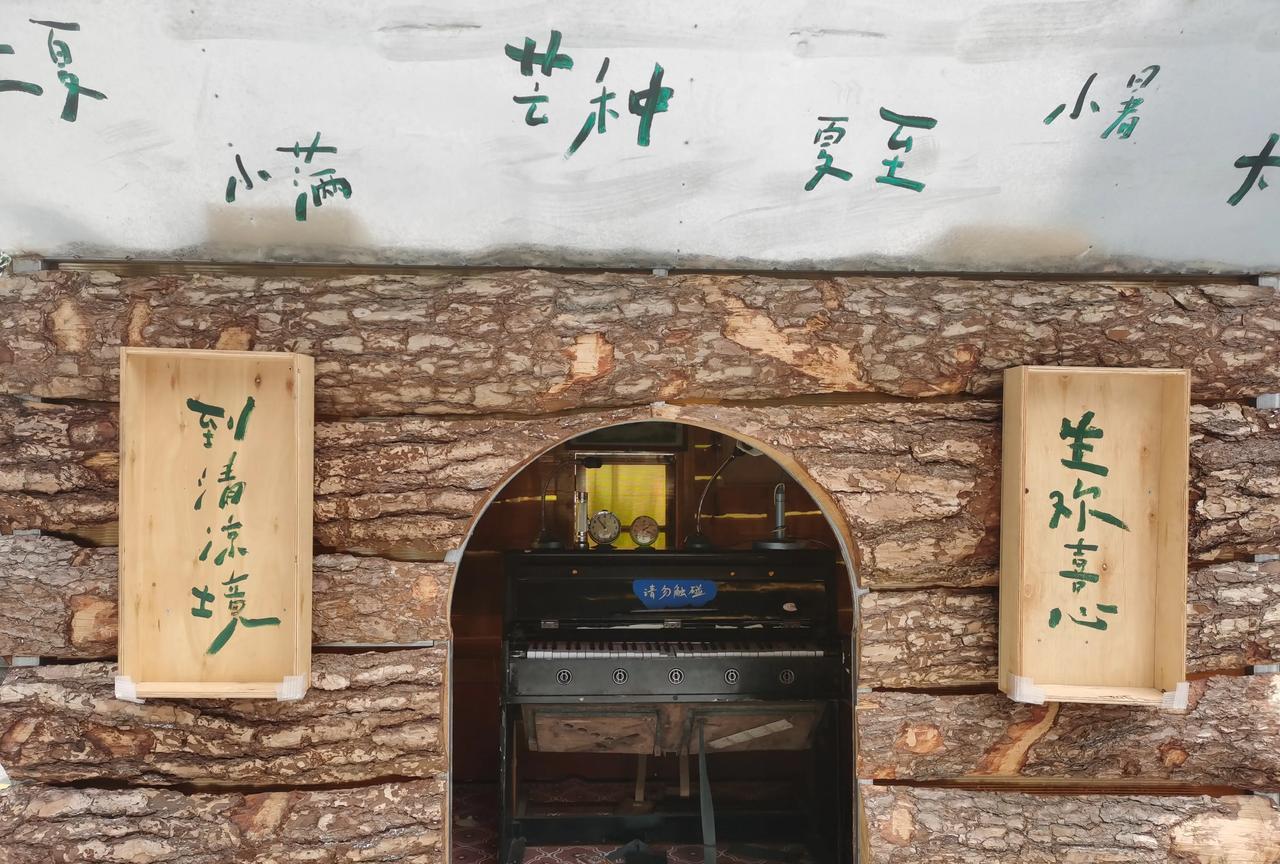 夏
小满
芒种
夏至
小暑
到清凉境
生欢喜心
请勿触碰